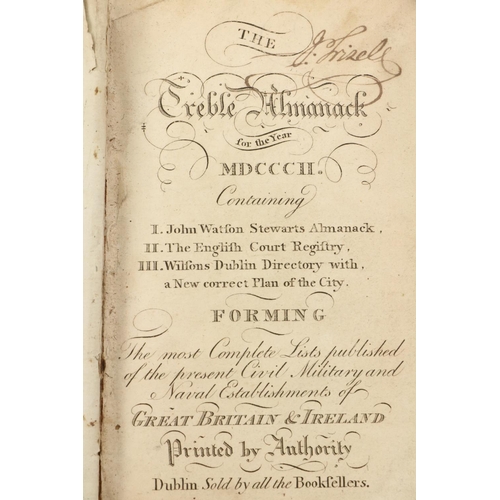 THE
J. Frizell
Treble Almanack
for the Year
MDCCCII.
Containing
I. John Watſon Stewarts Almanack,
II. The Engliſh Court Regiſtry,
III. Wilſons Dublin Directory with,
a New correct Plan of the City.
FORMING
The most Complete Lists published
of the present Civil Military and
Naval Establishments of
GREAT BRITAIN & IRELAND
Printed by Authority
Dublin Sold by all the Bookſellers.